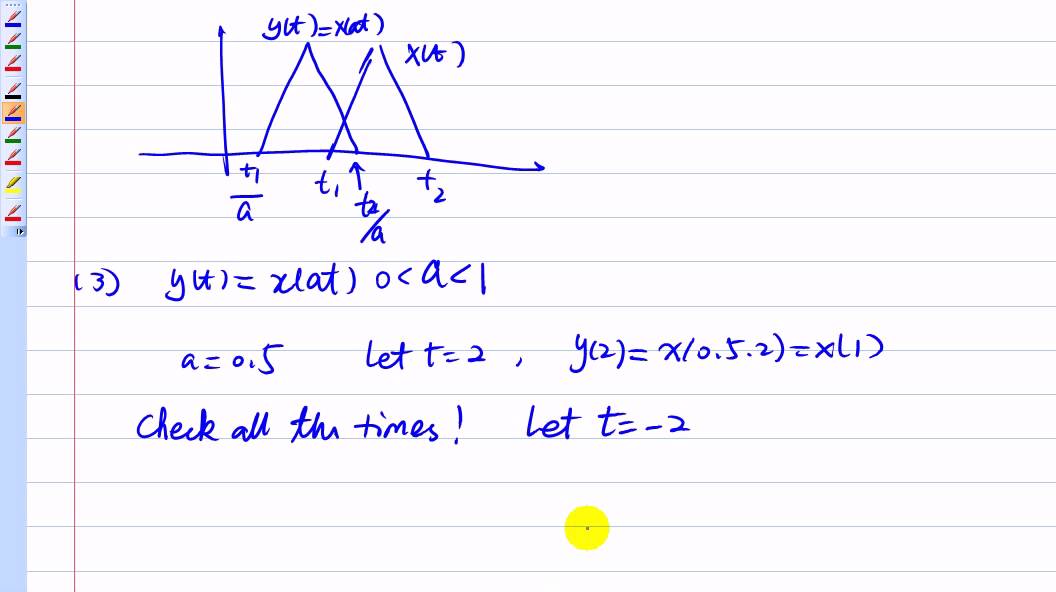 y(t)=x(at)
x(t)
t1/a t1 t2/a t2
(3) y(t) = x(at) 0<a<1
a = 0.5 let t=2 , y(2) = x(0.5.2) = x(1)
Check all the times! Let t=-2